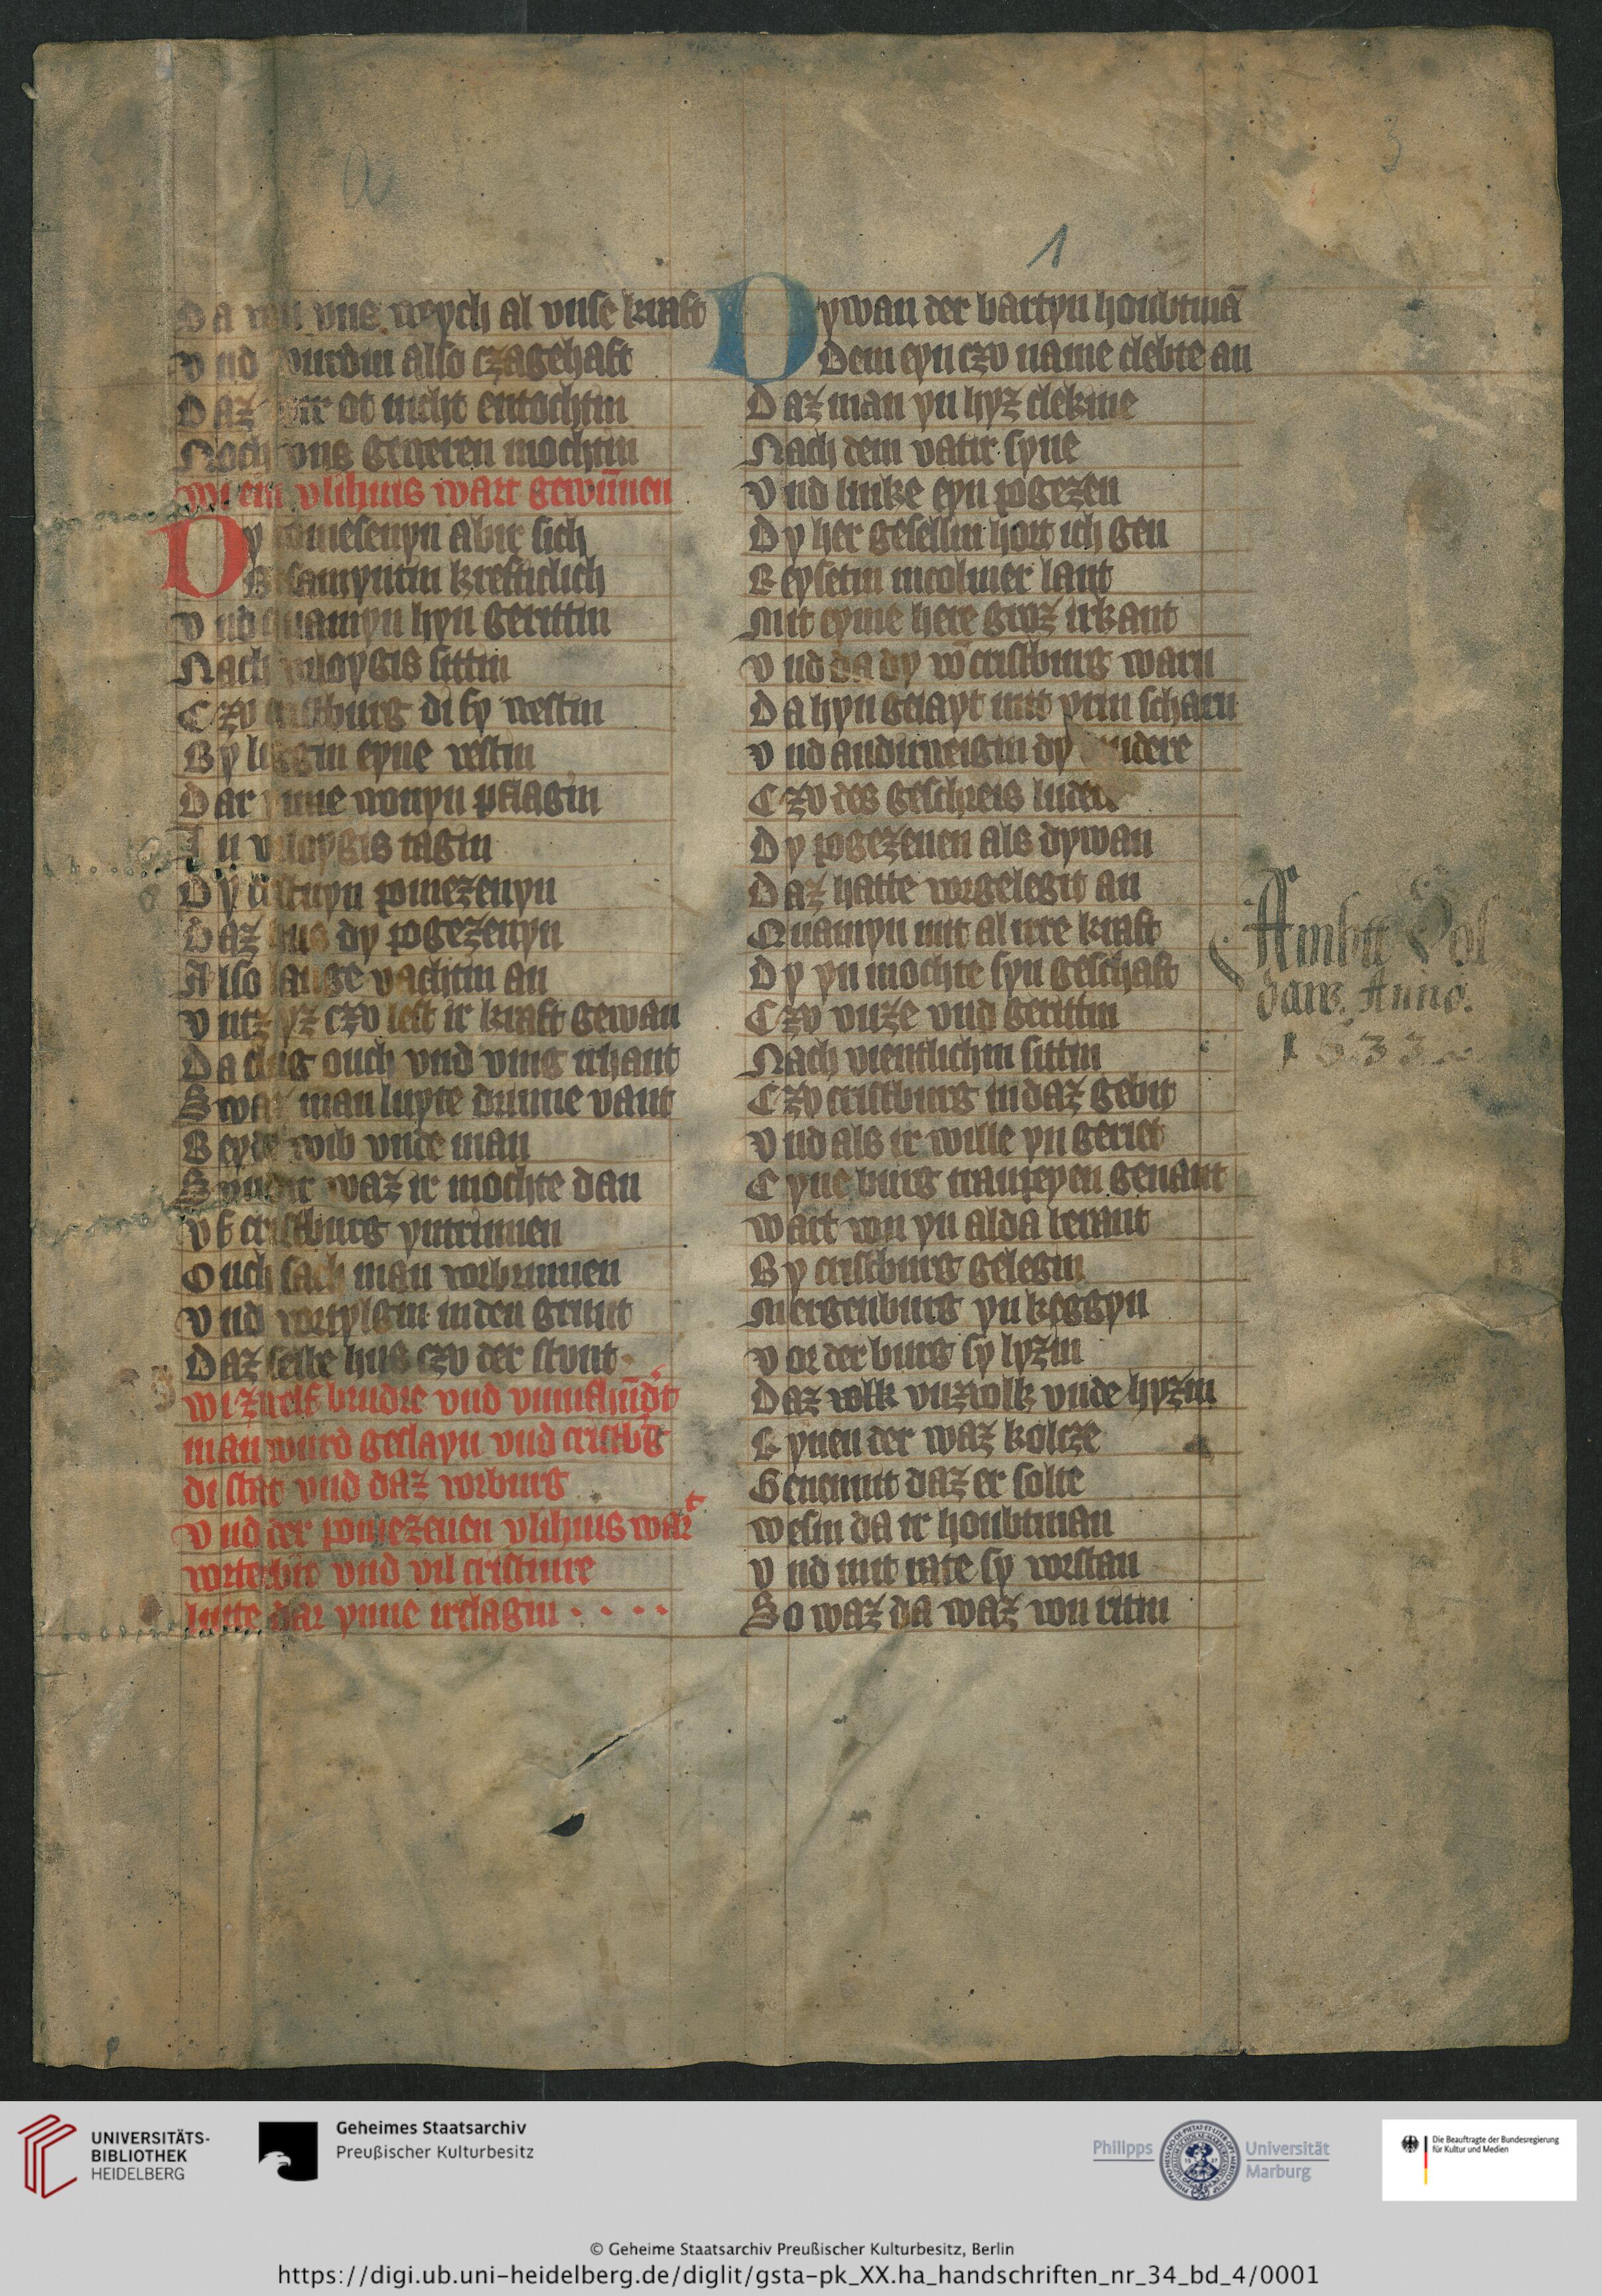 a
3
1
Da von vns weych al vnse kraft
Vnd wurdin also czagehaft
Daz wir ot nicht entochtin
Noch vns generen mochtin
Wi ein vlihuis wart gewūnen
Dy pomesenyn abir sich
Besamyntin krefticlich
Vnd quamyn hyn gerittin
Nach vrloygis sittin
Czv cristburg di sy vestin
By ligin eyne vestin
Dar ynne wonyn pflagin
In vrloygis tagin
Dy cristnyn pomezenyn
Daz hus dy pogezenyn
Also lange vachtin an
Vntz yz czv lest ir kraft gewan
Da clug ouch vnd ving irhant
Swaz man luyte drinne vant
Beyde wib vnde man
Sundir waz ir mochte dan
Vf cristburg yntrinnen
Ouch sach man vorbrinnen
Vnd vortylgin in den grunt
Daz selbe hus czv der stunt
Wi zwelf brudre vnd vumfhūdᵗ
man wurd geslayn vnd cristbᵍ
di stat vnd daz vorburg
Vnd der pomezenen vlihuis wart
vorterbit vnd vil cristinre
luite dar ynne irslagin . . . .
Dywan der bartyn houbtmā
Dem eyn czv name clebte an
Daz man yn hyz clekine
Nach dem vatir syne
Vnd linke eyn pogezen
Dy her gesellin hort ich gen
Reysetin in colmer lant
Mit eyme here groz irkant
Vnd da dy vō cristburg warn
Da hyn geiayt mit yrin scharn
Vnd andirweigin dy brudere
Czv des geschreis ludere
Dy pogezenen als dywan
Daz hatte vorgelegit an
Quamyn mit al irre kraft
Dy yn mochte syn geschaft
Czv vuze vnd gerittin
Nach vientlichin sittin
Czv cristburg in daz gebit
Vnd als ir wille yn geriet
Eyne burg trampeyen genant
wart von yn alda berant
By cristburg gelegin
Mergenburg yn keggyn
Vor der burg sy lyzin
Daz volk vuzvolk vnde hyzin
Eynen der waz kolcze
Genennt daz er solte
Wesin da ir houbtman
Vnd mit rate sy vorstan
So waz da waz von ritin
Ambtt Sol
daw. Anno.
1533
UNIVERSITÄTS-
BIBLIOTHEK
HEIDELBERG
Geheimes Staatsarchiv
Preußischer Kulturbesitz
Philipps
Universität
Marburg
Die Beauftragte der Bundesregierung
für Kultur und Medien
© Geheime Staatsarchiv Preußischer Kulturbesitz, Berlin
https://digi.ub.uni-heidelberg.de/diglit/gsta-pk_XX.ha_handschriften_nr_34_bd_4/0001